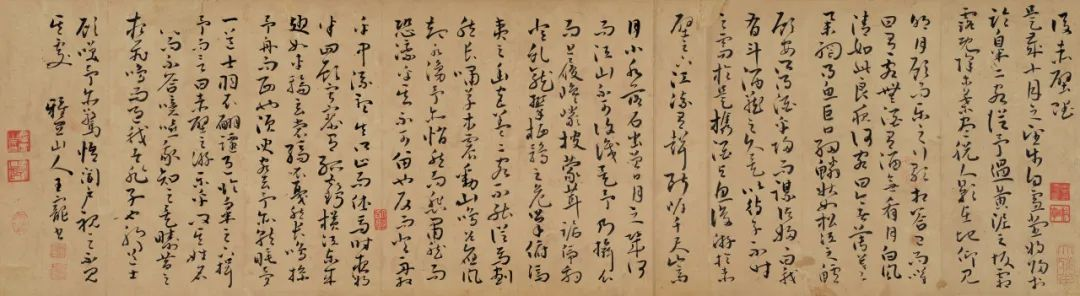 後赤壁賦
是歲十月之望步自雪堂將歸于
臨皋二客從予過黃泥之坂霜
露既降木葉盡脫人影在地仰見
明月顧而樂之行歌相答已而嘆
曰有客無酒有酒無肴月白風
清如此良夜何客曰今者薄暮
舉網得魚巨口細鱗狀如松江之鱸
顧安所得酒乎歸而謀諸婦婦曰我
有斗酒藏之久矣以待子不時
之需於是攜酒與魚復遊於赤
壁之下江流有聲斷岸千尺山高
月小水落石出曾日月之幾何
而江山不可復識矣予乃攝衣
而上履巉巖披蒙茸踞虎豹
登虬龍攀栖鶻之危巢俯馮
夷之幽宮蓋二客不能從焉劃
然長嘯草木震動山鳴谷應風
起水涌予亦悄然而悲肅然而
恐凜乎其不可留也反而登舟放
乎中流聽其所止而休焉時夜將
半四顧寂寥適有孤鶴橫江東來
翅如車輪玄裳縞衣戛然長鳴掠
予舟而西也須臾客去予亦就睡夢
一道士羽衣翩躚過臨皋之下揖
予而言曰赤壁之遊樂乎問其姓名
俛而不答嗚呼噫嘻我知之矣疇昔之
夜飛鳴而過我者非子也耶道士
顧笑予亦驚悟開戶視之不見
其處 雅宜山人王寵書